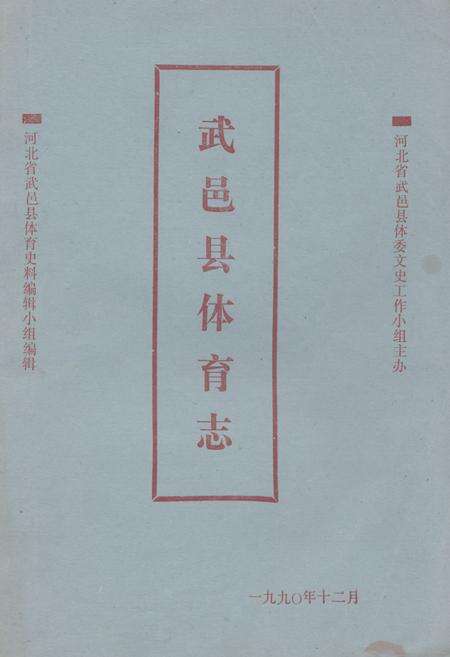 河北省武邑县体委文史工作小组主办
武邑县体育志
河北省武邑县体育史料编辑小组编辑
一九九〇年十二月